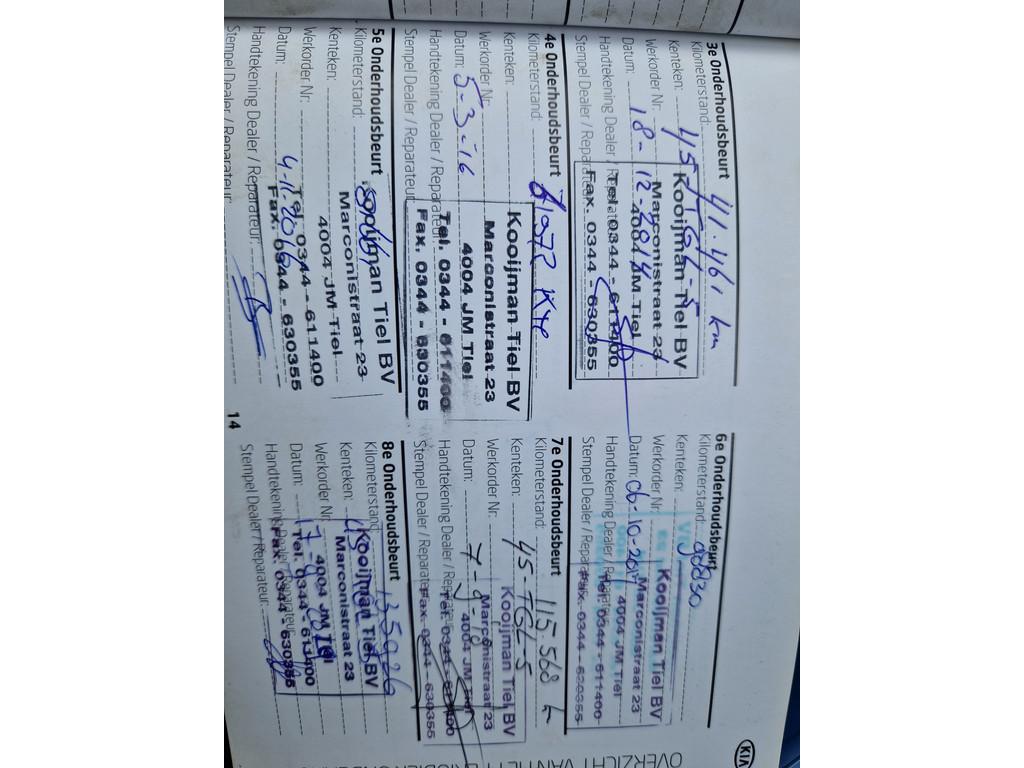 3e Onderhoudsbeurt
Kilometerstand: 41.461 km
Kenteken:
Werkorder Nr.:
Datum: 18-12-2014
Handtekening Dealer / Reparateur:
Stempel Dealer / Reparateur:
Kooijman Tiel BV
Marconistraat 23
4004 JM Tiel
Tel. 0344 - 611400
Fax. 0344 - 630355
4e Onderhoudsbeurt
Kilometerstand:
Kenteken:
Werkorder Nr.:
Datum: 5-3-16
Handtekening Dealer / Reparateur:
Stempel Dealer / Reparateur:
Kooijman Tiel BV
Marconistraat 23
4004 JM Tiel
Tel. 0344 - 611400
Fax. 0344 - 630355
5e Onderhoudsbeurt
Kilometerstand:
Kenteken:
Werkorder Nr.:
Datum: 4-11-2016
Handtekening Dealer / Reparateur:
Stempel Dealer / Reparateur:
Kooijman Tiel BV
Marconistraat 23
4004 JM Tiel
Tel. 0344 - 611400
Fax. 0344 - 630355
14
6e Onderhoudsbeurt
Kilometerstand:
Kenteken:
Werkorder Nr.:
Datum: 06-10-2017
Handtekening Dealer / Reparateur:
Stempel Dealer / Reparateur:
Kooijman Tiel BV
Marconistraat 23
4004 JM Tiel
Tel. 0344 - 611400
Fax. 0344 - 630355
7e Onderhoudsbeurt
Kilometerstand: 115.568
Kenteken: 45-TGL-5
Werkorder Nr.:
Datum: 7-9-18
Handtekening Dealer / Reparateur:
Stempel Dealer / Reparateur:
Kooijman Tiel BV
Marconistraat 23
4004 JM Tiel
Tel. 0344 - 611400
Fax. 0344 - 630355
8e Onderhoudsbeurt
Kilometerstand: 135926
Kenteken:
Werkorder Nr.:
Datum:
Handtekening Dealer / Reparateur:
Stempel Dealer / Reparateur:
Kooijman Tiel BV
Marconistraat 23
4004 JM Tiel
Tel. 0344 - 611400
Fax. 0344 - 630355
KIA
OVERZICHT VAN HET